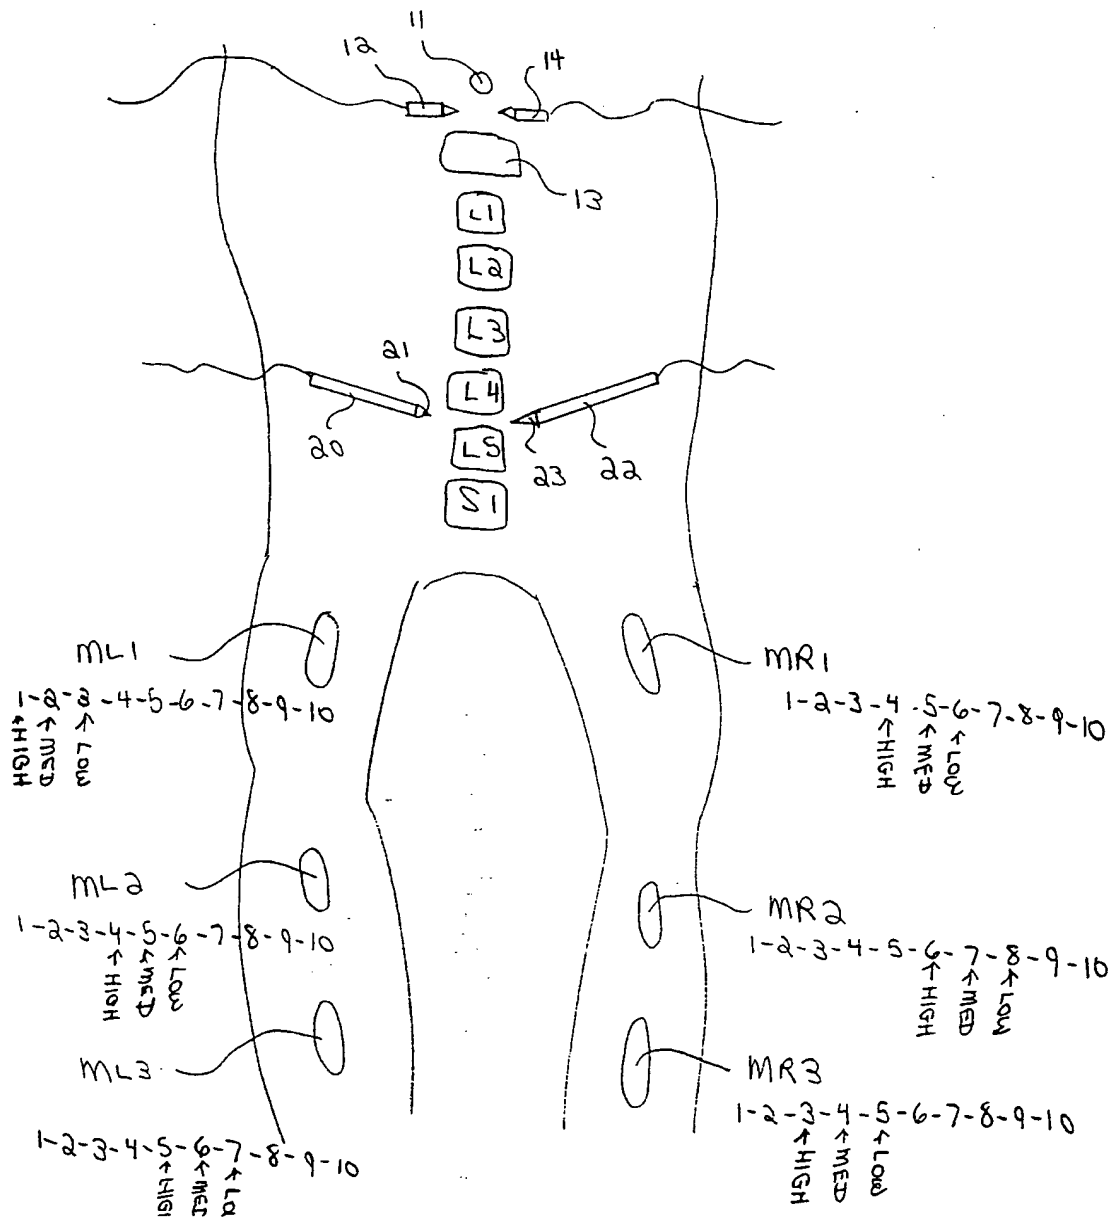 11
12
14
13
L1
L2
L3
21
L4
20
L5
23
22
S1
ML1
MR1
1-2-3-4-5-6-7-8-9-10
↑HIGH ↑MED ↑LOW
1-2-3-4-5-6-7-8-9-10
↑HIGH ↑MED ↑LOW
ML2
MR2
1-2-3-4-5-6-7-8-9-10
↑HIGH ↑MED ↑LOW
1-2-3-4-5-6-7-8-9-10
↑HIGH ↑MED ↑LOW
ML3
MR3
1-2-3-4-5-6-7-8-9-10
↑HIGH ↑MED ↑LOW
1-2-3-4-5-6-7-8-9-10
↑HIGH ↑MED ↑LO